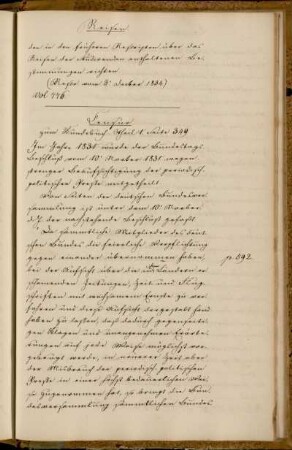 Reisen
der in den früheren Rescripten über das
Reisen der Studirenden enthaltenen Be-
stimmungen
(Rescr. vom 3t
Vol 226.
Censur
zum Handbuch Theil 1 Seite 309
Im Jahre 1831 wurde der Bundestags
Beschluß vom 10t Novbr 1831 wegen
strenger Beaufsichtigung der periodisch-
politischen Presse mitgetheilt
Von Seiten der deutschen Bundesver-
sammlung ist unter dem 10. Novbr
d. J. der nachstehende Beschluß gefaßt
Da sämmtliche Mitglieder des deut-
schen Bundes die feierliche Verpflichtung
gegen einander übernommen haben,
bei der Aufsicht über die in Ländern er-
scheinenden Zeitungen, Zeit und Flug-
schriften mit wachsamem Ernste zu ver-
fahren und diese Aufsicht dergestalt hand-
haben zu lassen, daß dadurch gegenseiti-
gen Klagen und unangenehmen Erörte-
rungen auf jede Weise möglichst vor-
gebeugt werde, in neuerer Zeit aber
der Misbrauch der periodisch-politischen
Presse in einer höchst bedauerlichen Wei-
se zugenommen hat, so bringt die Bun-
desversammlung sämmtlichen Bundes
p. 892